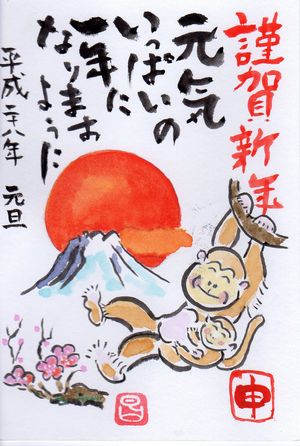 謹賀新年
元気
いっぱいの
一年に
なりますお
ように
平成二十八年 元旦
申